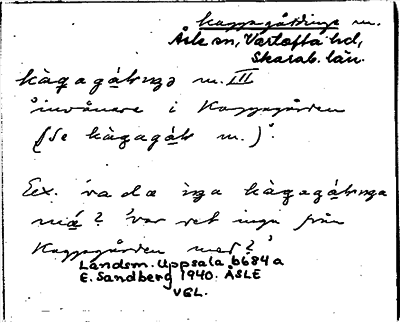 Kaggagårdinge m.
Åsle sn, Vartofta hd,
Skarab. län.
m. III
'invånare i Kaggagården
(Se m.)'.
Ex. va da iga
mä? 'var det inga från
Kaggagården med?'
Landsm. Uppsala 6684 a
E. Sandberg 1940. ÅSLE
VGL.